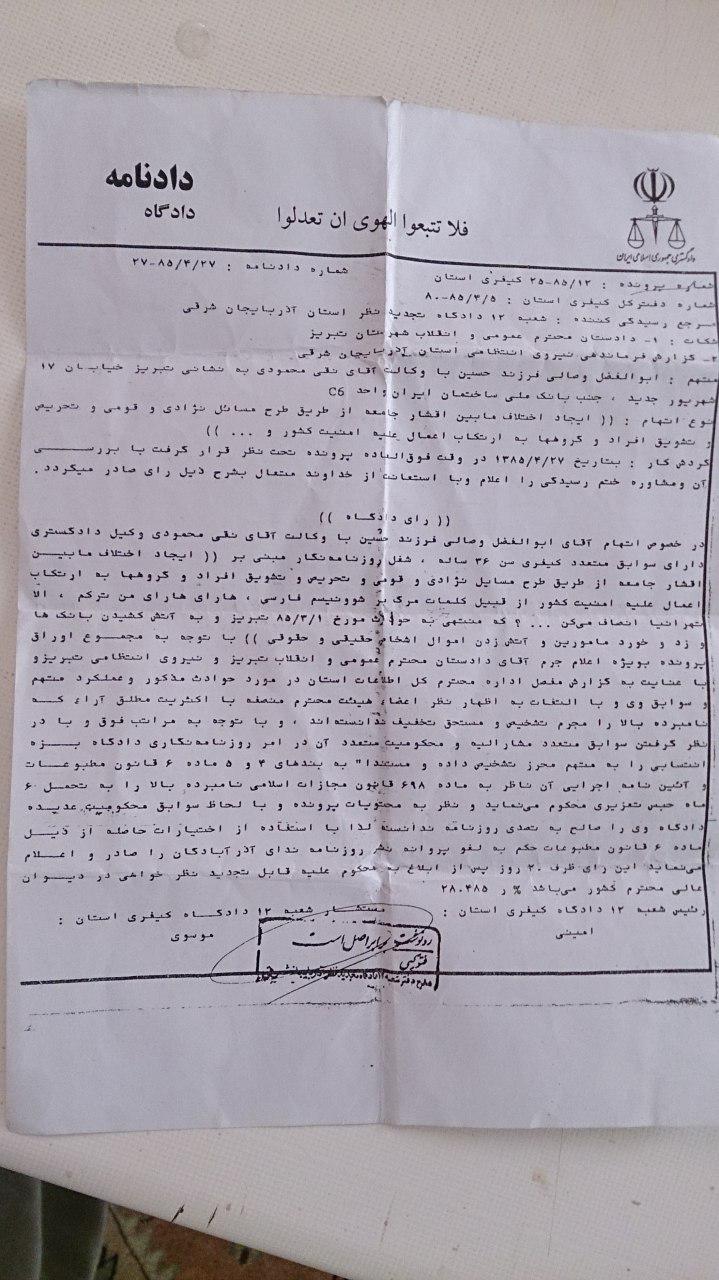 دادنامه
دادگاه
فلا تتبعوا الهوی ان تعدلوا
دادگستری جمهوری اسلامی ایران
شماره پرونده : ۲۵-۸۵/۱۲ کیفری استان
شماره دادنامه : ۲۷-۸۵/۴/۲۷
شماره دفترکل کیفری استان : ۸۰-۸۵/۴/۵
مرجع رسیدگی کننده : شعبه ۱۲ دادگاه تجدید نظر استان آذربایجان شرقی
شکات : ۱- دادستان محترم عمومی و انقلاب شهرستان تبریز
۲- گزارش فرماندهی نیروی انتظامی استان آذربایجان شرقی
متهم : ابوالفضل وصالی فرزند حسین با وکالت آقای نقی محمودی به نشانی تبریز خیابان ۱۷
شهریور جدید ، جنب بانک ملی ساختمان ایران واحد C6
نوع اتهام : (( ایجاد اختلاف مابین اقشار جامعه از طریق طرح مسائل نژادی و قومی و تحریص
و تشویق افراد و گروهها به ارتکاب اعمال علیه امنیت کشور و ... ))
گردش کار : بتاریخ ۱۳۸۵/۴/۲۷ در وقت فوق‌العاده پرونده تحت نظر قرار گرفت با بررسی
آن ومشاوره ختم رسیدگی را اعلام وبا استعانت از خداوند متعال بشرح ذیل رای صادر میگردد .
(( رای دادگاه ))
در خصوص اتهام آقای ابوالفضل وصالی فرزند حسین با وکالت آقای نقی محمودی وکیل دادگستری
دارای سوابق متعدد کیفری سن ۳۶ ساله ، شغل روزنامه‌نگار مبنی بر (( ایجاد اختلاف مابین
اقشار جامعه از طریق طرح مسایل نژادی و قومی و تحریص و تشویق افراد و گروهها به ارتکاب
اعمال علیه امنیت کشور از قبیل کلمات مرگ بر شوونیسم فارسی ، هارای هارای من ترکم ، الا
تهرانیا انصاف می‌کن ... ؟ که منتهی به حوادث مورخ ۸۵/۳/۱ تبریز و به آتش کشیدن بانک ها
و زد و خورد مامورین و آتش زدن اموال اشخاص حقیقی و حقوقی )) با توجه به مجموع اوراق
پرونده بویژه اعلام جرم آقای دادستان محترم عمومی و انقلاب تبریز و نیروی انتظامی تبریز و
با عنایت به گزارش مفصل اداره محترم کل اطلاعات استان در مورد حوادث مذکور وعملکرد متهم
و سوابق وی و با التفات به اظهار نظر اعضاء هیئت محترم منصفه با اکثریت مطلق آراء که
نامبرده بالا را مجرم تشخیص و مستحق تخفیف ندانسته‌اند ، و با توجه به مراتب فوق و با در
نظر گرفتن سوابق متعدد مشارالیه و محکومیت متعدد آن در امر روزنامه‌نگاری دادگاه بزه
انتسابی را به متهم محرز تشخیص داده و مستندا" به بندهای ۴ و ۵ ماده ۶ قانون مطبوعات
و آئین نامه اجرایی آن ناظر به ماده ۶۹۸ قانون مجازات اسلامی نامبرده بالا را به تحمل ۶
ماه حبس تعزیری محکوم می‌نماید و نظر به محتویات پرونده و با لحاظ سوابق محکومیت عدیده
دادگاه وی را صالح به تصدی روزنامه ندانسته لذا با استفاده از اختیارات حاصله از ذیل
ماده ۶ قانون مطبوعات حکم به لغو پروانه نشر روزنامه ندای آذرآبادگان را صادر و اعلام
می‌نماید این رای ظرف ۲۰ روز پس از ابلاغ به محکوم علیه قابل تجدید نظر خواهی در دیوان
عالی محترم کشور می‌باشد % ر ۲۸۰۴۸۵
رئیس شعبه ۱۲ دادگاه کیفری استان :
مستشار شعبه ۱۲ دادگاه کیفری استان :
امینی
موسوی
رونوشت برابر اصل است